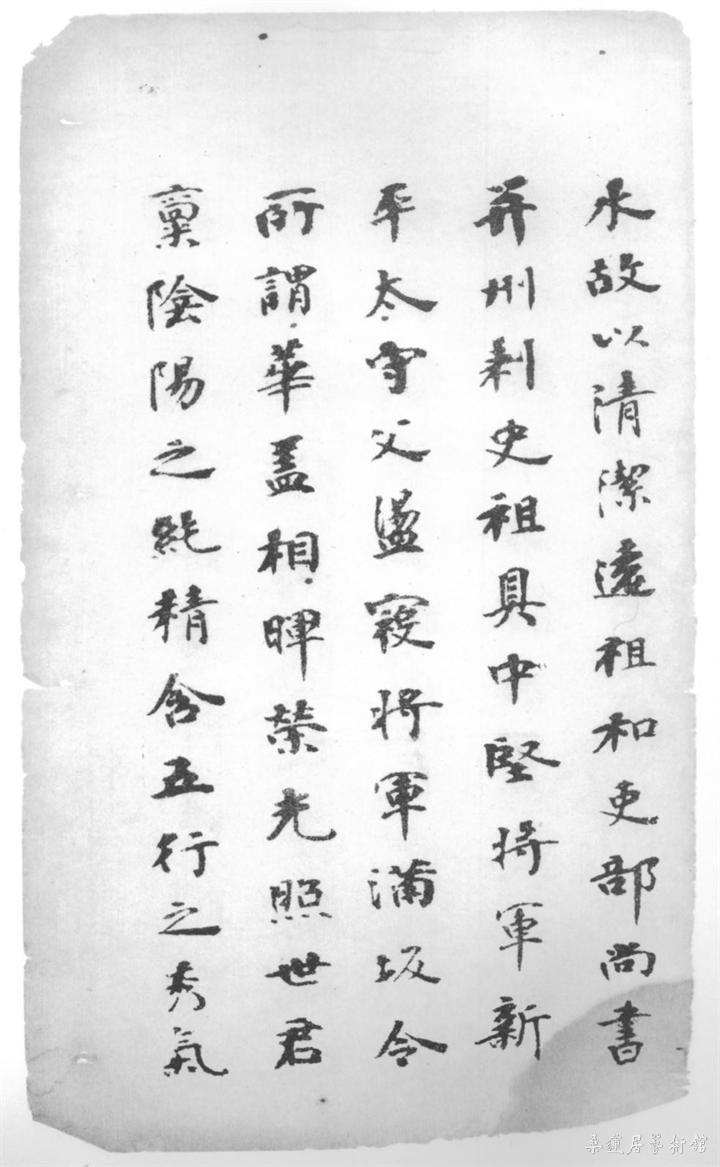 水故以清潔遠祖和吏部尚書
并州刺史祖具中堅將軍新
平太守父盪寇將軍滿坂令
所謂華盖相暉榮光照世君
禀陰陽之純精含五行之秀氣
藝術館